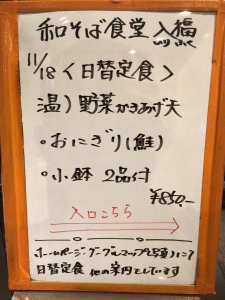 和そば食堂 入福
いりふく
11/18〈日替定食〉
温)野菜かきあげ天
。おにぎり(鮭)
。小鉢 2品付
¥850.-
入口こちら
ホームページ・グーグルマップと
日替定食 他の案内をしています